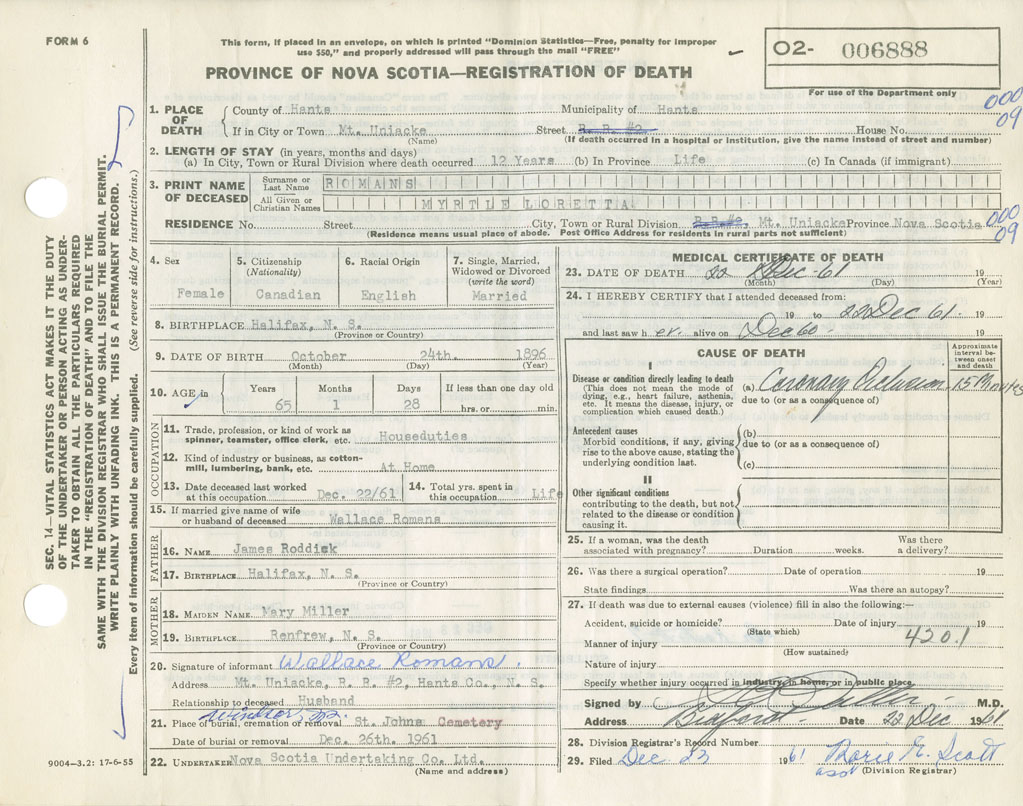 FORM 6
This form, if placed in an envelope, on which is printed "Dominion Statistics—Free, penalty for improper
use $50," and properly addressed will pass through the mail "FREE"
O2- 006888
For use of the Department only
PROVINCE OF NOVA SCOTIA—REGISTRATION OF DEATH
SEC. 14—VITAL STATISTICS ACT MAKES IT THE DUTY
OF THE UNDERTAKER OR PERSON ACTING AS UNDER-
TAKER TO OBTAIN ALL THE PARTICULARS REQUIRED
IN THE "REGISTRATION OF DEATH" AND TO FILE THE
SAME WITH THE DIVISION REGISTRAR WHO SHALL ISSUE THE BURIAL PERMIT.
WRITE PLAINLY WITH UNFADING INK. THIS IS A PERMANENT RECORD.
Every item of information should be carefully supplied. (See reverse side for instructions.)
1. PLACE OF DEATH County of Hants Municipality of Hants 000
If in City or Town Mt. Uniacke Street R. R. #2 House No. 09
(Name) (If death occurred in a hospital or institution, give the name instead of street and number)
2. LENGTH OF STAY (in years, months and days)
(a) In City, Town or Rural Division where death occurred 12 Years (b) In Province Life (c) In Canada (if immigrant)
3. PRINT NAME OF DECEASED Surname or Last Name ROMANS
All Given or Christian Names MYRTLE LORETTA
RESIDENCE No. Street City, Town or Rural Division R.R#2, Mt. Uniacke Province Nova Scotia 000 09
(Residence means usual place of abode. Post Office Address for residents in rural parts not sufficient)
4. Sex 5. Citizenship (Nationality) 6. Racial Origin 7. Single, Married, Widowed or Divorced (write the word)
Female Canadian English Married
8. BIRTHPLACE Halifax, N. S.
(Province or Country)
9. DATE OF BIRTH October 24th. 1896
(Month) (Day) (Year)
10. AGE in Years Months Days If less than one day old
65 1 28 hrs. or min.
OCCUPATION
11. Trade, profession, or kind of work as
spinner, teamster, office clerk, etc. Houseduties
12. Kind of industry or business, as cotton-
mill, lumbering, bank, etc. At Home
13. Date deceased last worked at this occupation Dec. 22/61 14. Total yrs. spent in this occupation Life
15. If married give name of wife
or husband of deceased Wallace Romans
FATHER
16. NAME James Roddick
17. BIRTHPLACE Halifax, N. S.
(Province or Country)
MOTHER
18. MAIDEN NAME Mary Miller
19. BIRTHPLACE Renfrew, N. S.
(Province or Country)
20. Signature of informant Wallace Romans.
Address Mt. Uniacke, R. R. #2, Hants Co., N. S.
Relationship to deceased Husband
Windsor, N.S.
21. Place of burial, cremation or removal St. Johns Cemetery
Date of burial or removal Dec. 26th. 1961
22. UNDERTAKER Nova Scotia Undertaking Co. Ltd.
(Name and address)
9004—3.2: 17-6-55
MEDICAL CERTIFICATE OF DEATH
23. DATE OF DEATH 22 Dec-61 19
(Month) (Day) (Year)
24. I HEREBY CERTIFY that I attended deceased from:
19 to 22 Dec 61. 19
and last saw h er alive on Dec 60 19
CAUSE OF DEATH
Approximate interval between onset and death
I
Disease or condition directly leading to death
(This does not mean the mode of
dying, e.g., heart failure, asthenia,
etc. It means the disease, injury, or
complication which caused death.)
(a) Coronary Occlusion 15 Minutes
due to (or as a consequence of)
Antecedent causes
Morbid conditions, if any, giving
rise to the above cause, stating the
underlying condition last.
(b)
due to (or as a consequence of)
(c)
II
Other significant conditions
contributing to the death, but not
related to the disease or condition
causing it.
25. If a woman, was the death
associated with pregnancy? Duration weeks. Was there a delivery?
26. Was there a surgical operation? Date of operation 19
State findings Was there an autopsy?
27. If death was due to external causes (violence) fill in also the following:—
Accident, suicide or homicide? Date of injury 19
(State which)
Manner of injury 420.1
(How sustained)
Nature of injury
Specify whether injury occurred in industry, in home, or in public place
Signed by M.D.
Address Date 22 Dec 1961
28. Division Registrar's Record Number
29. Filed Dec 23 1961 Marie E. Scott
asst (Division Registrar)